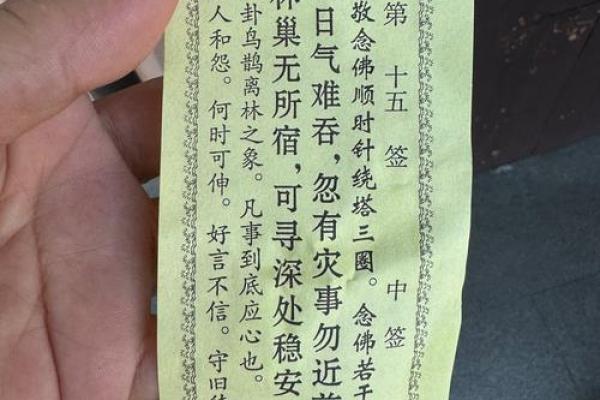 第十五签 中签
敬念佛顺时针绕塔三圈。念佛若
日气难吞，忽有灾事勿近
巢无所宿，可寻深处稳安
卦鸟鹊离林之象。凡事到底应心也。
人和怨。何时可伸。好言不信。守旧